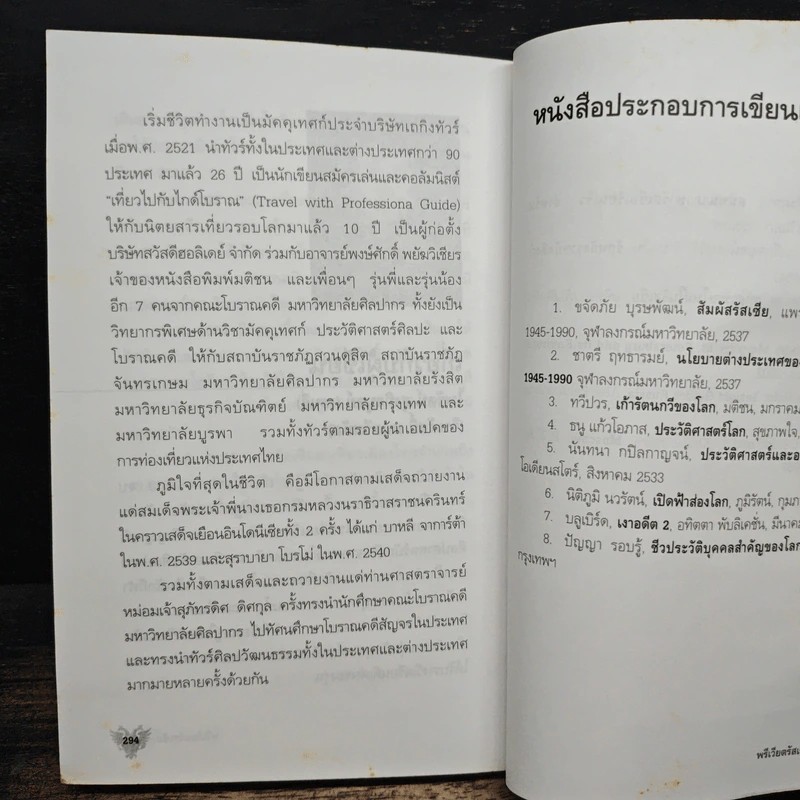 เริ่มชีวิตทำงานเป็นมัคคุเทศก์ประจำบริษัทเถกิงทัวร์
เมื่อพ.ศ. 2521 นำทัวร์ทั้งในประเทศและต่างประเทศกว่า 90
ประเทศ มาแล้ว 26 ปี เป็นนักเขียนสมัครเล่นและคอลัมนิสต์
"เที่ยวไปกับไกด์โบราณ" (Travel with Professiona Guide)
ให้กับนิตยสารเที่ยวรอบโลกมาแล้ว 10 ปี เป็นผู้ก่อตั้ง
บริษัทสวัสดีฮอลิเดย์ จำกัด ร่วมกับอาจารย์พงษ์ศักดิ์ พยัฆวิเชียร
เจ้าของหนังสือพิมพ์มติชน และเพื่อนๆ รุ่นพี่และรุ่นน้อง
อีก 7 คนจากคณะโบราณคดี มหาวิทยาลัยศิลปากร ทั้งยังเป็น
วิทยากรพิเศษด้านวิชามัคคุเทศก์ ประวัติศาสตร์ศิลปะ และ
โบราณคดี ให้กับสถาบันราชภัฏสวนดุสิต สถาบันราชภัฏ
จันทรเกษม มหาวิทยาลัยศิลปากร มหาวิทยาลัยรังสิต
มหาวิทยาลัยธุรกิจบัณฑิตย์ มหาวิทยาลัยกรุงเทพ และ
มหาวิทยาลัยบูรพา รวมทั้งทัวร์ตามรอยผู้นำเอเปคของ
การท่องเที่ยวแห่งประเทศไทย
ภูมิใจที่สุดในชีวิต คือมีโอกาสตามเสด็จถวายงาน
แด่สมเด็จพระเจ้าพี่นางเธอกรมหลวงนราธิวาสราชนครินทร์
ในคราวเสด็จเยือนอินโดนีเซียทั้ง 2 ครั้ง ได้แก่ บาหลี จาการ์ต้า
ในพ.ศ. 2539 และสุราบายา โบรโม่ ในพ.ศ. 2540
รวมทั้งตามเสด็จและถวายงานแด่ท่านศาสตราจารย์
หม่อมเจ้าสุภัทรดิศ ดิศกุล ครั้งทรงนำนักศึกษาคณะโบราณคดี
มหาวิทยาลัยศิลปากร ไปทัศนศึกษาโบราณคดีสัญจรในประเทศ
และทรงนำทัวร์ศิลปวัฒนธรรมทั้งในประเทศและต่างประเทศ
มากมายหลายครั้งด้วยกัน
294
หนังสือประกอบการเขียน
1. ขจัดภัย บุรุษพัฒน์, สัมผัสรัสเซีย, แพร
1945-1990, จุฬาลงกรณ์มหาวิทยาลัย, 2537
2. ชาตรี ฤทธารมย์, นโยบายต่างประเทศขอ
1945-1990 จุฬาลงกรณ์มหาวิทยาลัย, 2537
3. ทวีปวร, เก้ารัตนกวีของโลก, มติชน, มกราคม
4. ธนู แก้วโอภาส, ประวัติศาสตร์โลก, สุขภาพใจ,
5. นันทนา กปิลกาญจน์, ประวัติศาสตร์และอ
โอเดียนสโตร์, สิงหาคม 2533
6. นิติภูมิ นวรัตน์, เปิดฟ้าส่องโลก, ภูมิรัตน์, กุมภ
7. บลูเบิร์ด, เงาอดีต 2, อทิตตา พับลิเคชั่น, มีนาค
8. ปัญญา รอบรู้, ชีวประวัติบุคคลสำคัญของโลก
กรุงเทพฯ
พรีเวียตรัสเ